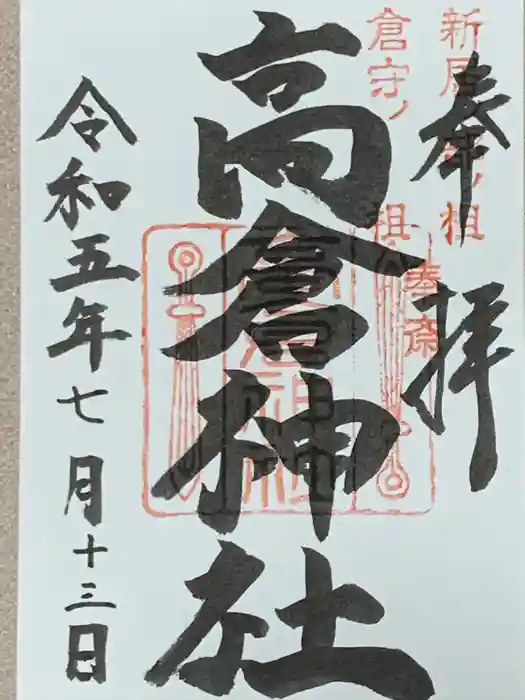 奉拝
高倉神社
令和五年七月十三日
倉守ノ祖
奉斎